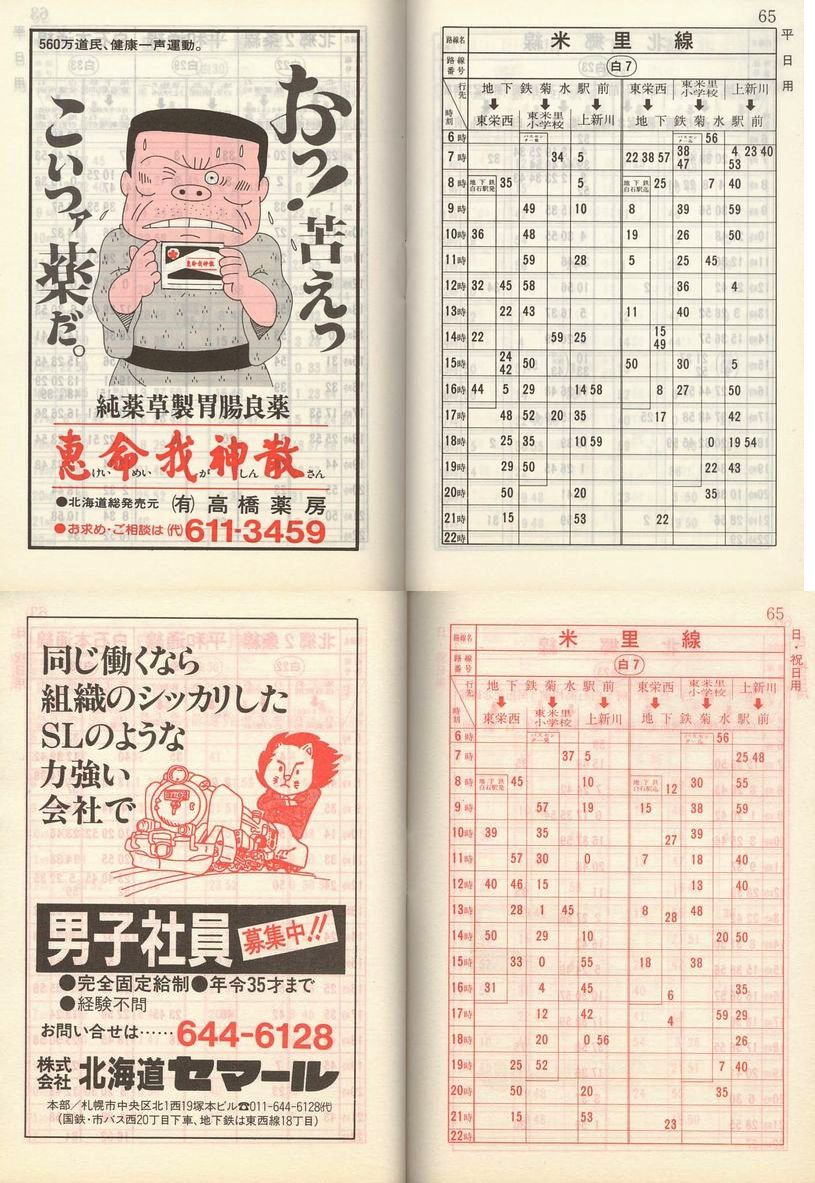 560万道民、健康一声運動。
おっ!苦えっ
こいつァ薬だ。
純薬草製胃腸良薬
恵命我神散
けい めい が しん さん
●北海道総発売元 (有)高橋薬房
●お求め・ご相談は(代)611-3459
65
平日用
路線名 米里線
路線番号 白7
行先 地下鉄菊水駅前 東栄西 東米里小学校 上新川
時刻 東栄西 東米里小学校 上新川 地下鉄菊水駅前
6時 56
7時 34 5 22 38 57 38 47 4 23 40 53
8時 地下鉄白石駅発 35 5 地下鉄白石駅迄 25 7 40
9時 49 10 8 39 59
10時 36 48 19 26 50
11時 59 28 5 25 45
12時 32 45 58 36 4
13時 22 43 11 40
14時 22 59 25 15 49
15時 24 42 50 50 30 5
16時 44 5 29 14 58 8 27 50
17時 48 52 20 35 17 42
18時 25 35 10 59 0 19 54
19時 29 50 22 43
20時 50 20 35
21時 15 53 22
22時
同じ働くなら
組織のシッカリした
SLのような
力強い
会社で
男子社員 募集中!!
●完全固定給制●年令35才まで
●経験不問
お問い合せは……644-6128
株式会社 北海道セマール
本部/札幌市中央区北1西19塚本ビル☎011-644-6128(代)
(国鉄・市バス西20丁目下車、地下鉄は東西線18丁目)
65
日・祝日用
路線名 米里線
路線番号 白7
行先 地下鉄菊水駅前 東栄西 東米里小学校 上新川
時刻 東栄西 東米里小学校 上新川 地下鉄菊水駅前
6時 56
7時 37 5 25 48
8時 地下鉄白石駅発 45 10 地下鉄白石駅迄 12 30 55
9時 57 19 15 38 59
10時 39 35 27 39
11時 57 30 0 7 18 40
12時 40 46 15 13 40
13時 28 1 45 8 28 48
14時 50 29 10 20 50
15時 33 0 55 18 38
16時 31 4 45 6 35
17時 12 42 4 59 29
18時 20 0 56 26
19時 25 52 7 40
20時 50 20 35
21時 15 53 23
22時